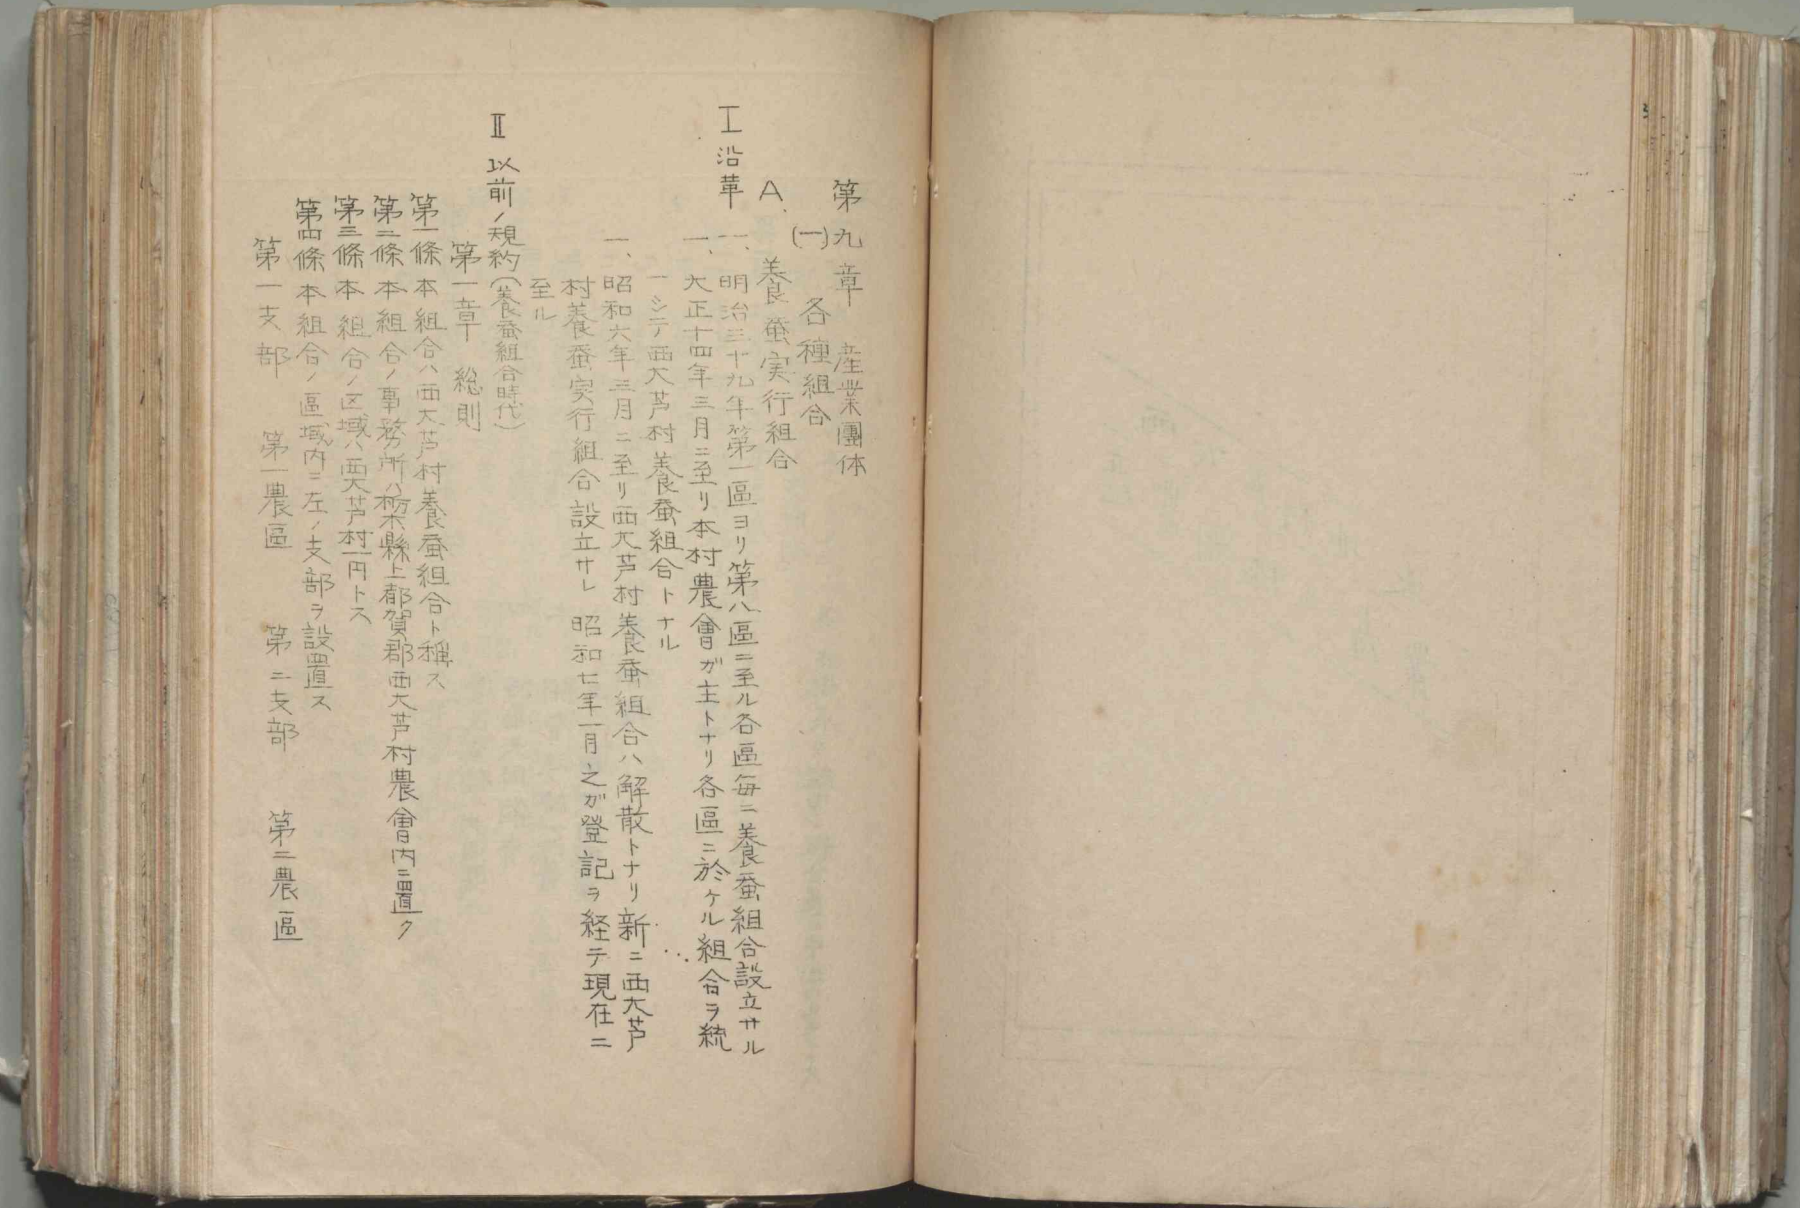 第九章 産業團体
(一) 各種組合
A 養蚕実行組合
I 沿革 一、明治三十九年第一區ヨリ第八區ニ至ル各區毎ニ養蚕組合設立サル
一、大正十四年三月ニ至リ本村農會ガ主トナリ各區ニ於ケル組合ヲ統
一シテ西大芦村養蚕組合トナル
一、昭和六年三月ニ至リ西大芦村養蚕組合ハ解散トナリ新ニ西大芦
村養蚕実行組合設立サレ 昭和七年一月之ガ登記ヲ経テ現在ニ
至ル
II 以前ノ規約(養蚕組合時代)
第一章 総則
第一條 本組合ハ西大芦村養蚕組合ト稱ス
第二條 本組合ノ事務所ハ栃木縣上都賀郡西大芦村農會内ニ置ク
第三條 本組合ノ区域ハ西大芦村一円トス
第四條 本組合ノ區域内ニ左ノ支部ヲ設置ス
第一支部 第一農區 第二支部 第二農區